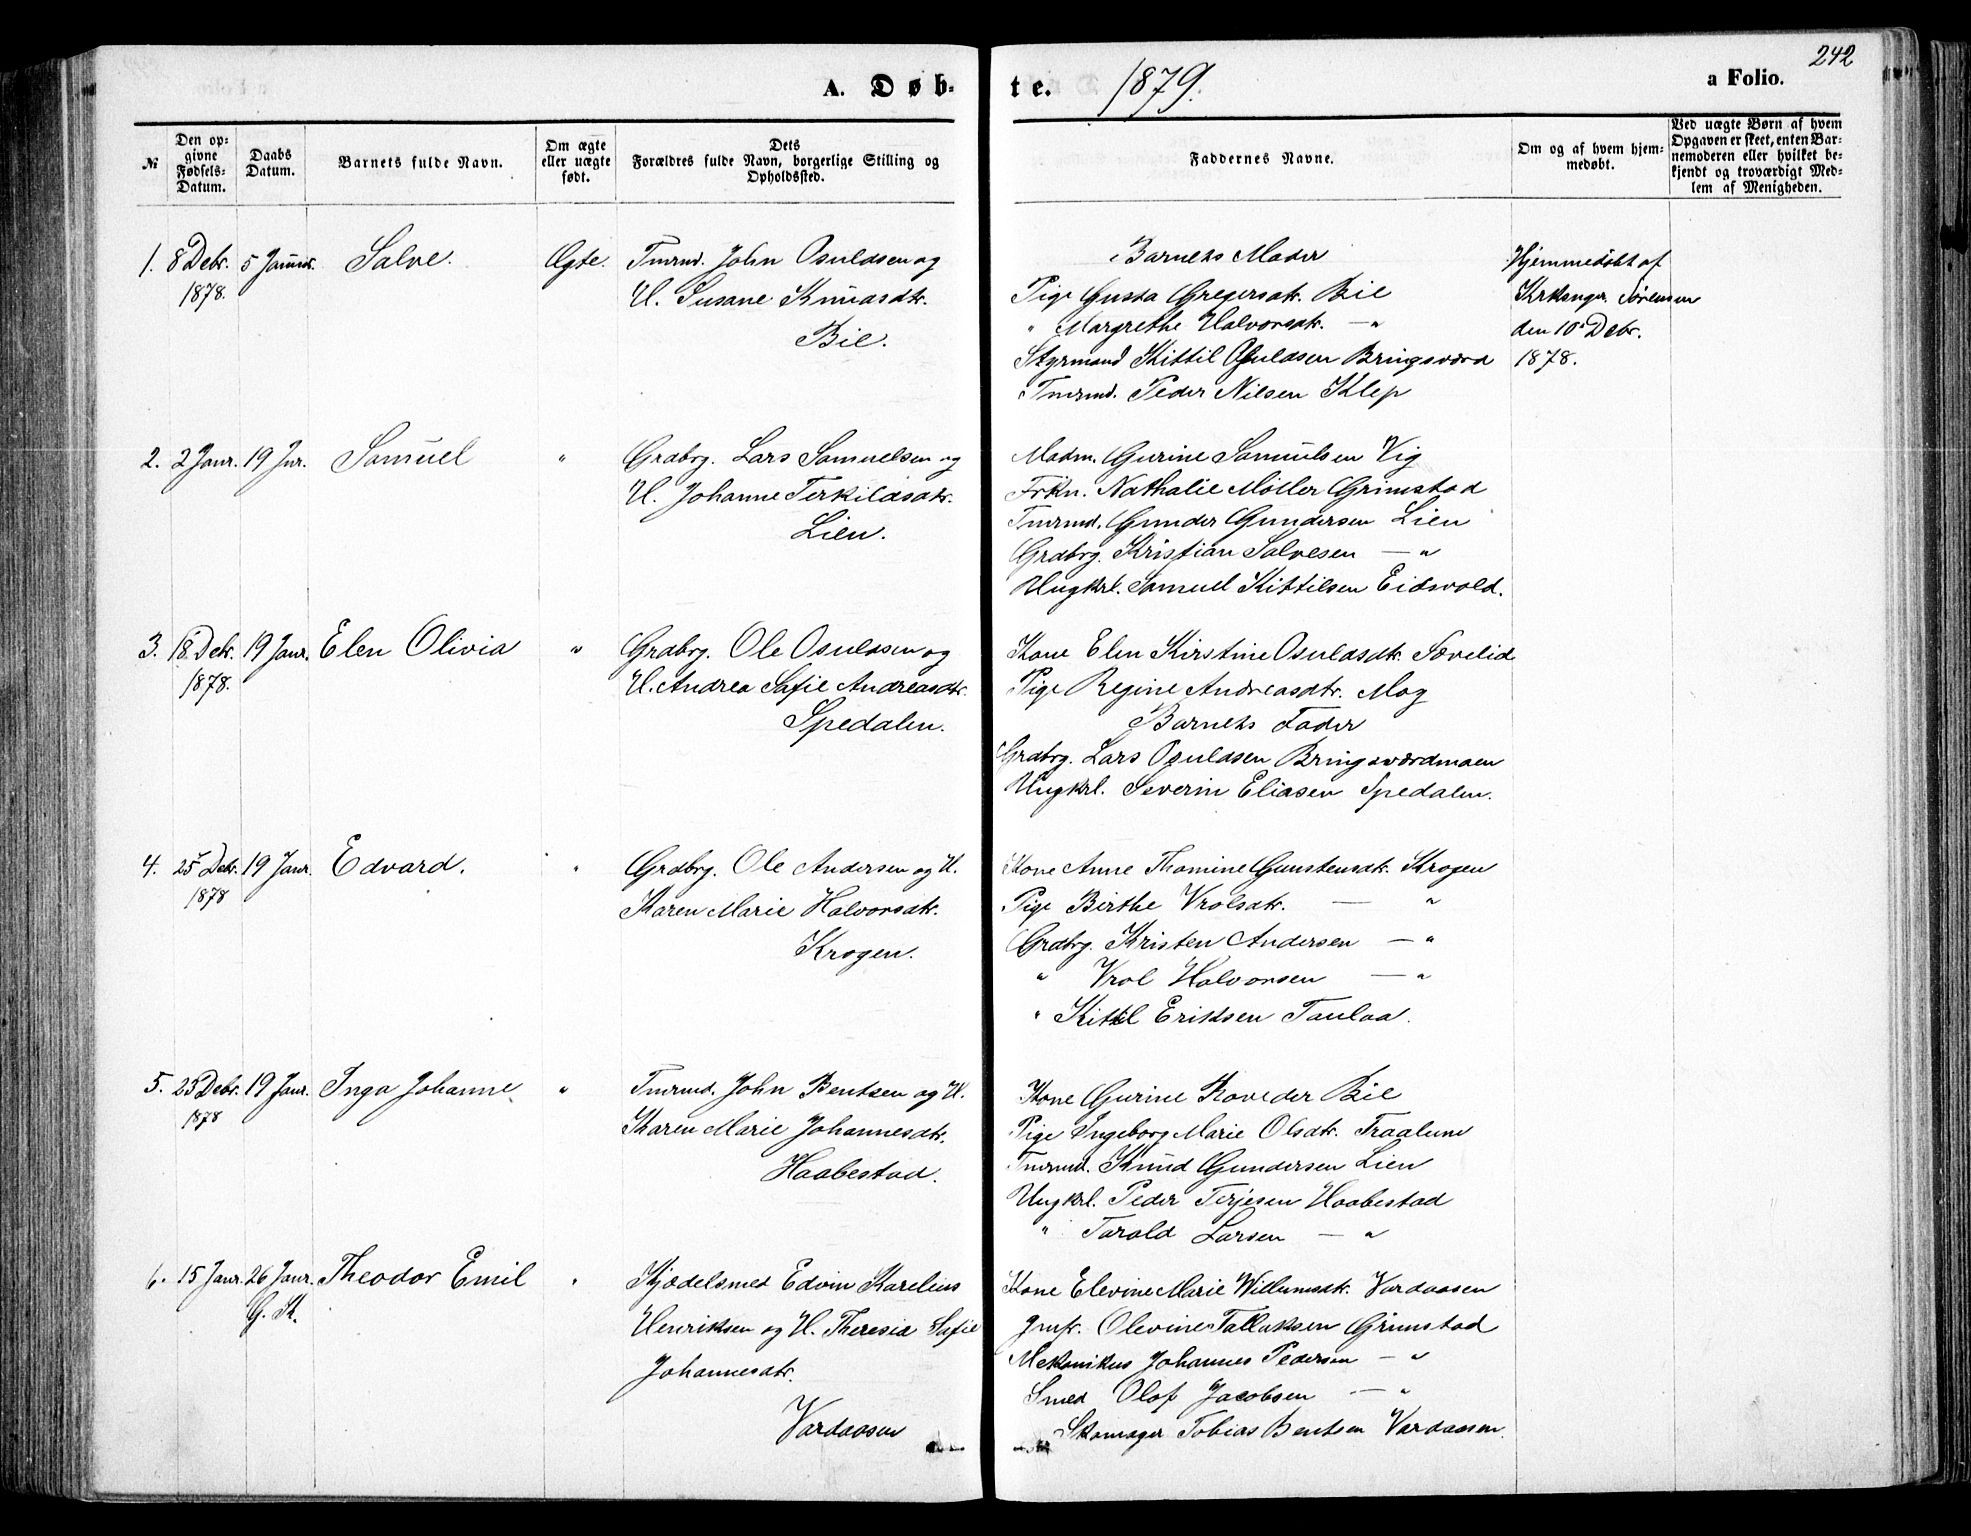 242
A. Døbte. 1879. a Folio.
№
Den opgivne Fødsels-Datum.
Daabs Datum.
Barnets fulde Navn.
Om ægte eller uægte født.
Dets Forældres fulde Navn, borgerlige Stilling og Opholdssted.
Faddernes Navne.
Om og af hvem hjemmedøbt.
Ved uægte Børn af hvem Opgaven er skeet, enten Barnemoderen eller hvilket bekjendt og troværdigt Medlem af Menigheden.
1. 8 Debr. 5 Januar. Salve. Ægte. Tmrmd. John Osuldsen og
1878. H. Susane Knudsdtr.
Bie.
Barnets Moder
Pige Gusta Gregersdtr. Bie
" Margrethe Halvorsdtr. — "
Styrmand Kittil Osuldsen Bringsværd
Tmrmd. Peder Nilsen Klep
Hjemmedøbt af
Krksanger Sørensen
den 10 Debr.
1878.
2. 2 Janr. 19 Jnr. Samuel " Grdbrg. Lars Samuelsen og
H. Johanne Terkildsdtr.
Lien.
Madm. Gurine Samuelsen Vig
Frkn. Nathalie Møller Grimstad
Tmrmd. Gunder Gundersen Lien
Grdbrg. Kristian Salvesen — "
Ungkrl. Samuel Kittilsen Eidsvold.
3. 18. Debr. 19 Janr. Elen Olivia " Grdbrg. Ole Osuldsen og
1878. H. Andrea Safie Andreasdtr.
Spedalen.
Kone Elen Kirstine Osuldsdtr. Sævelid
Pige Regine Andreasdtr. Mog
Barnets Fader
Grdbrg. Lars Osuldsen Bringsværdmoen
Ungkrl. Severin Eliasen Spedalen.
4. 25 Debr. 19 Janr. Edvard. " Grdbrg. Ole Andersen og H.
1878 Karen Marie Halvorsdtr.
Krogen.
Kone Anne Thomine Gunstensdtr. Krogen
Pige Birthe Vrolsdtr. — "
Grdbrg. Kristen Andersen — "
" Vrol Halvorsen — "
" Kittil Eriksen Taulaa.
5. 25 Debr. 19 Janr. Inga Johanne " Tmrmd. John Bentsen og H.
1878 Karen Marie Johannesdtr.
Haabestad.
Kone Gurine Roveder Bie
Pige Ingeborg Marie Olsdtr. Traalum
Tmrmd. Knud Gundersen Lien
Ungkrl. Peder Terjesen Haabestad
" Tarald Larsen — "
6. 15 Janr. 26 Janr. Theodor Emil " Kjedelsmed Edvin Karelius
G. K. Henriksen og H. Theresia Safie
Johannesdtr.
Vardaasen
Kone Elevine Marie Willumsdtr. Vardaasen
Jmfr. Olevine Tallaksen Grimstad
Mekanikus Johannes Pedersen — "
Smed Olof Jacobsen — "
Skomager Tobias Bentsen Vardaasen.